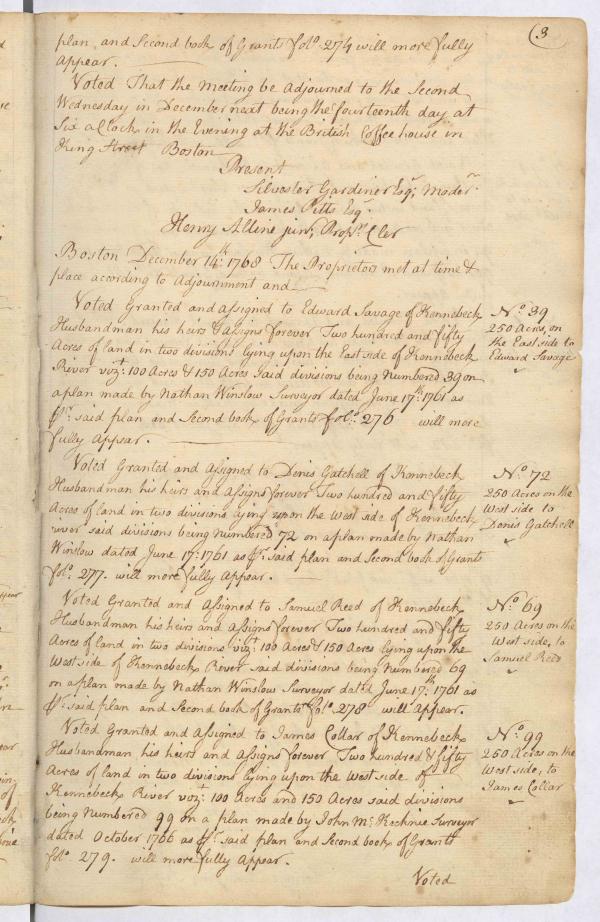 (3
plan, and Second book of Grants folo. 274 will more fully
Appear.
Voted That the meeting be Adjourned to the Second
Wednesday in December next being the fourteenth day at
Six a Clock in the Evening at the British Coffee house in
King Street Boston
Present
Silvester Gardiner Esqr. Moder.
James Pitts Esqr.
Henry Alline junr. Propr. Cler
Boston December 14th. 1768 The Proprietors met at time &
place according to Adjournment and
Voted Granted and assigned to Edward Savage of Kennebeck
Husbandman his heirs & assigns forever Two hundred and fifty
Acres of land in two divisions lying upon the East side of Kennebeck
River vizt. 100 Acres & 150 Acres said divisions being Numbered 39 on
a plan made by Nathan Winslow Surveyor dated June 17th. 1761 as
Pr. said plan and Second book of Grants folo. 276 will more
fully Appear.
No. 39
250 Acres, on
the East side to
Edward Savage
Voted Granted and Assigned to Denis Gatchell of Kennebeck
Husbandman his heirs and Assigns forever Two hundred and fifty
Acres of land in two divisions lying upon the West side of Kennebeck
river said divisions being Numbered 72 on a plan made by Nathan
Winslow dated June 17th. 1761 as Pr. said plan and Second book of Grants
folo. 277. will more fully Appear.
No. 72
250 Acres on the
West side to
Denis Gatchell
Voted Granted and Assigned to Samuel Reed of Kennebeck
Husbandman his heirs and Assigns forever Two hundred and fifty
Acres of land in two divisions vizt. 100 Acres & 150 Acres lying upon the
West side of Kennebeck River said divisions being Numbered 69
on a plan made by Nathan Winslow Surveyor dated June 17th. 1761 as
Pr. said plan and Second book of Grants folo. 278 will Appear.
No. 69
250 Acres on the
West side, to
Samuel Reed
Voted Granted and Assigned to James Collar of Kennebeck
Husbandman his heirs and Assigns forever Two hundred & fifty
Acres of land in two divisions lying upon the West side of
Kennebeck River vizt. 100 Acres and 150 Acres said divisions
being Numbered 99 on a plan made by John McKechnie Surveyor
dated October 1766 as Pr. said plan and Second book of Grants
folo. 279. will more fully Appear.
No. 99
250 Acres on the
West side, to
James Collar
Voted